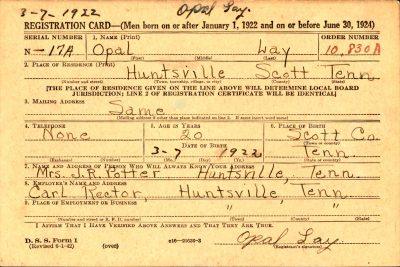 3-7-1922 Opal Lay.
REGISTRATION CARD—(Men born on or after January 1, 1922 and on or before June 30, 1924)
SERIAL NUMBER 1. NAME (Print) ORDER NUMBER
N-17A Opal Lay 10,830A
(First) (Middle) (Last)
2. PLACE OF RESIDENCE (Print)
Huntsville Scott Tenn
(Number and street) (Town, township, village, or city) (County) (State)
[THE PLACE OF RESIDENCE GIVEN ON THE LINE ABOVE WILL DETERMINE LOCAL BOARD
JURISDICTION; LINE 2 OF REGISTRATION CERTIFICATE WILL BE IDENTICAL]
3. MAILING ADDRESS
Same
[Mailing address if other than place indicated on line 2. If same insert word same]
4. TELEPHONE 5. AGE IN YEARS 6. PLACE OF BIRTH
None 20 Scott Co
DATE OF BIRTH (Town or county)
3-7 1922 Tenn
(Exchange) (Number) (Mo.) (Day) (Yr.) (State or country)
7. NAME AND ADDRESS OF PERSON WHO WILL ALWAYS KNOW YOUR ADDRESS
Mrs. J.R. Potter Huntsville, Tenn.
8. EMPLOYER'S NAME AND ADDRESS
Carl Rector, Huntsville, Tenn
9. PLACE OF EMPLOYMENT OR BUSINESS
(Number and street or R. F. D. number) (Town) (County) (State)
I AFFIRM THAT I HAVE VERIFIED ABOVE ANSWERS AND THAT THEY ARE TRUE.
D. S. S. Form 1
(Revised 6-1-42) (over) Opal Lay.
(Registrant's signature)